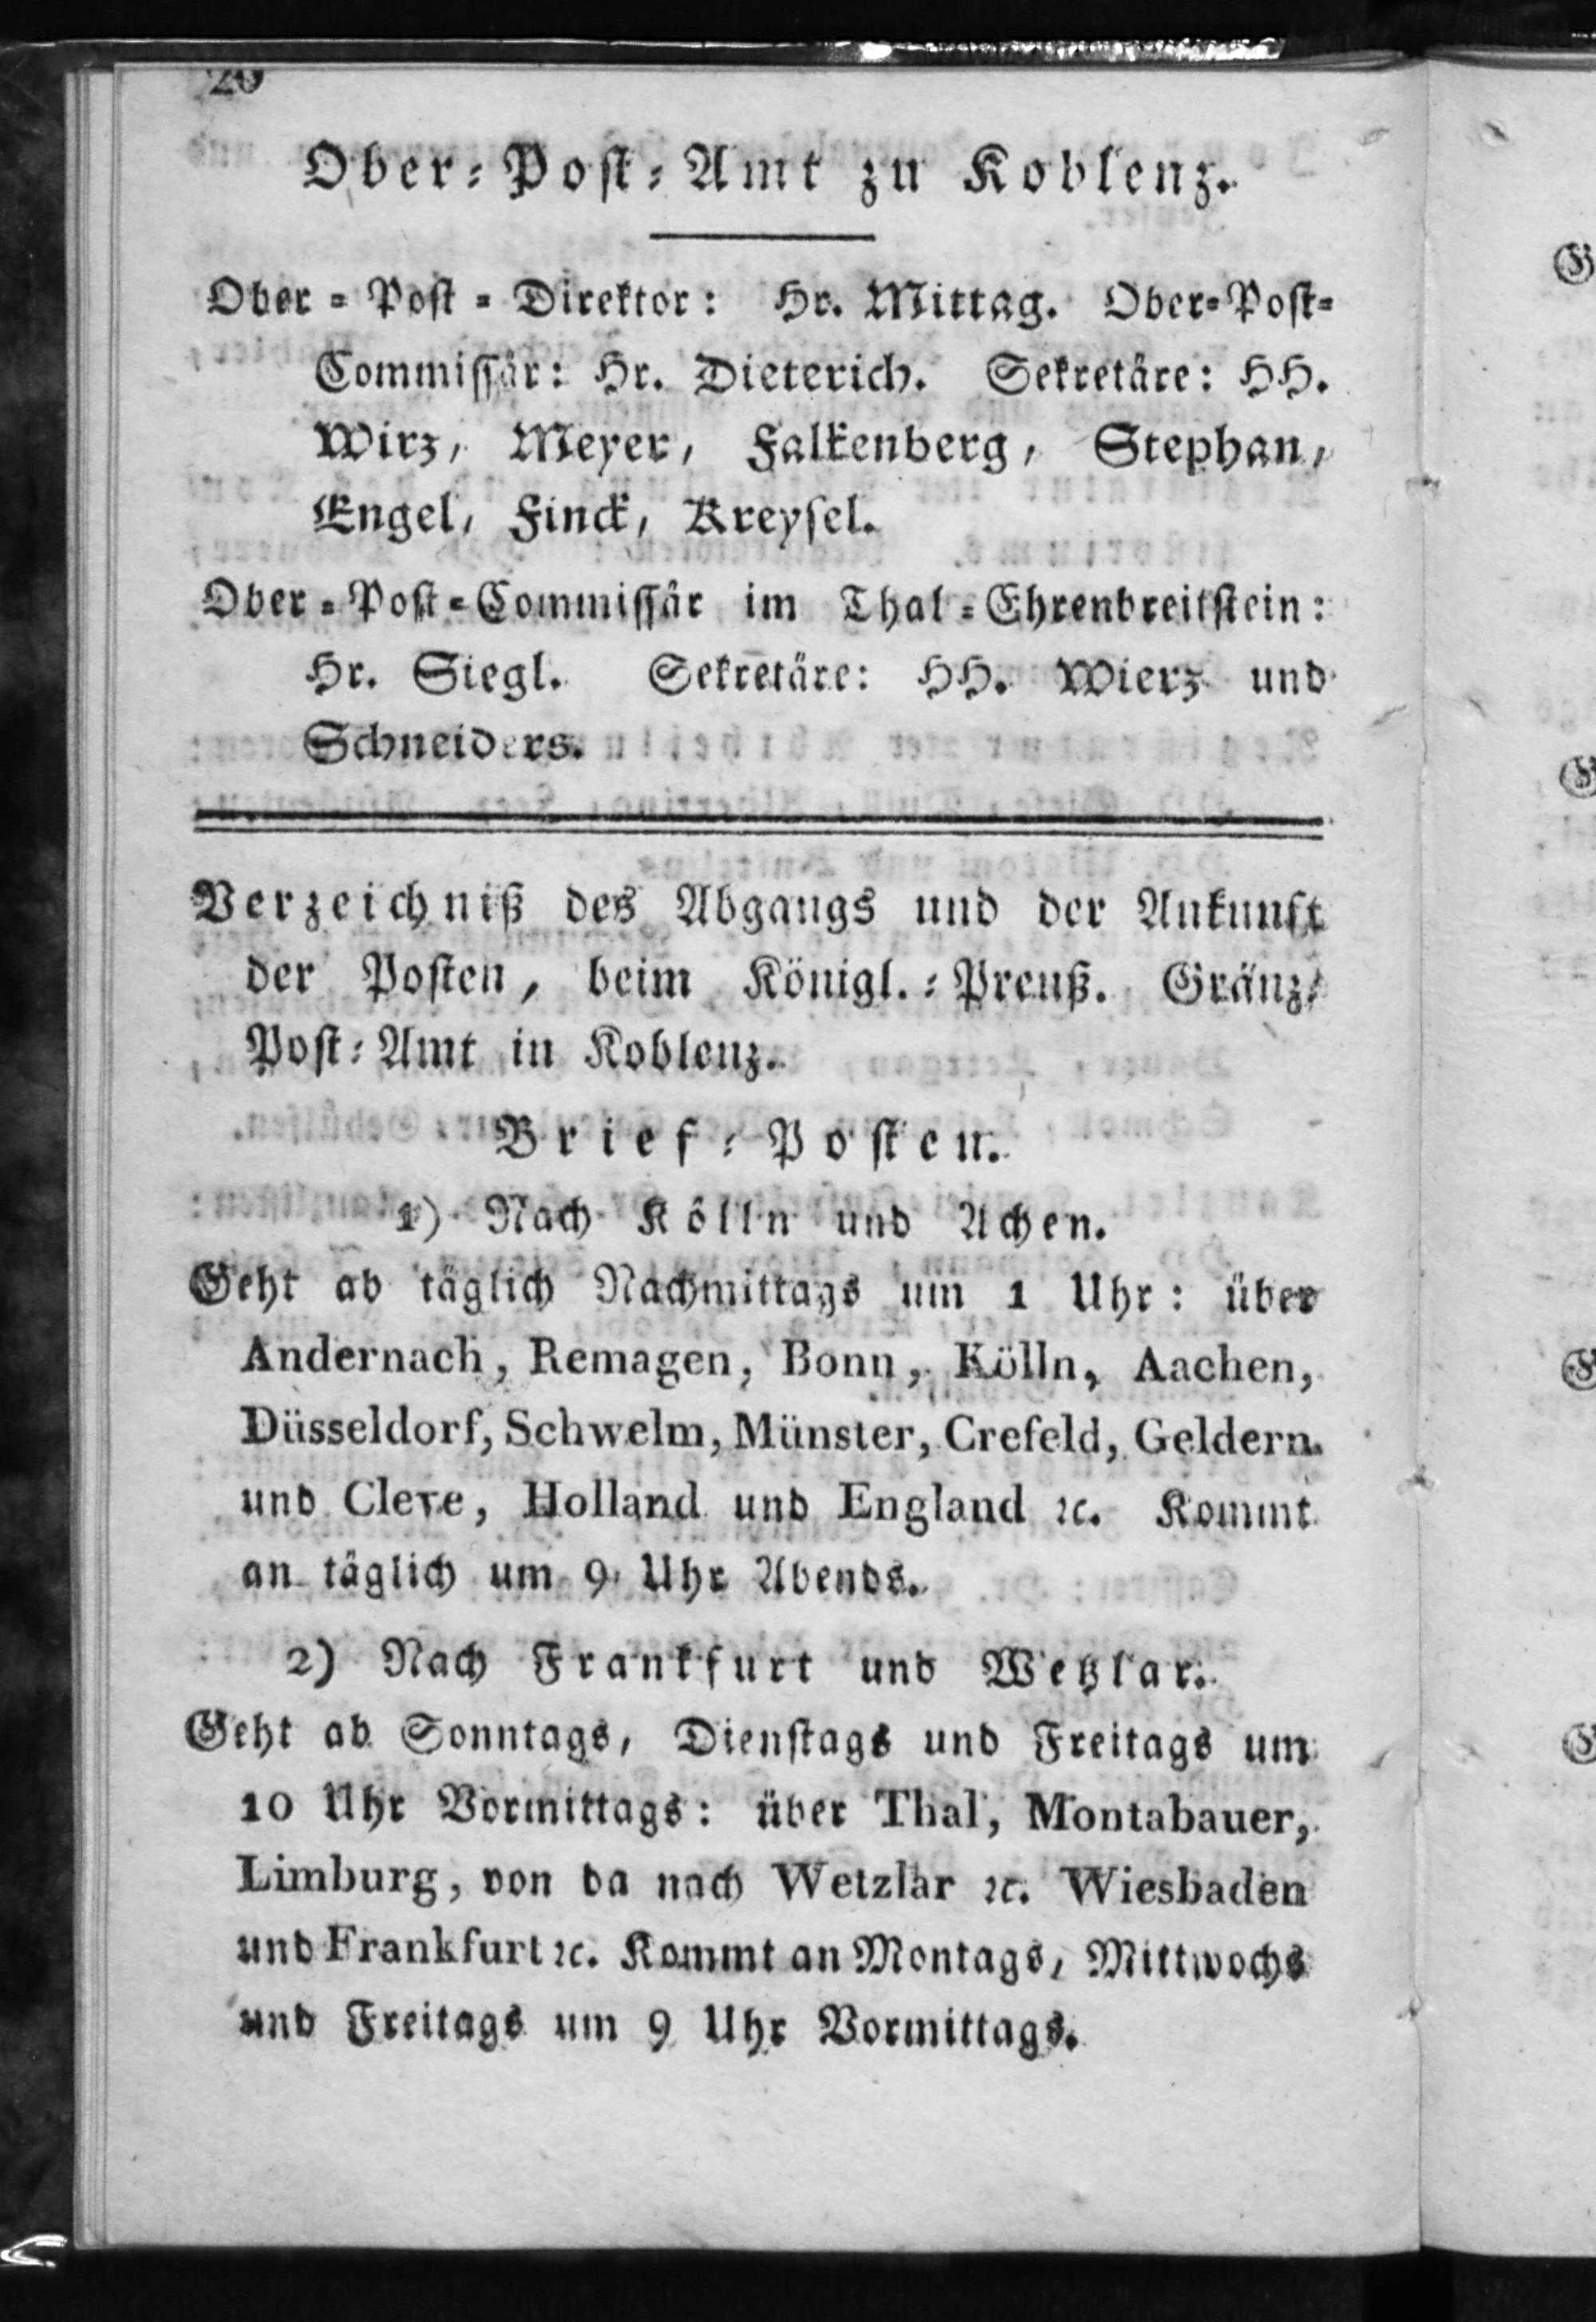 20
Ober-Post-Amt zu Koblenz.
Ober-Post-Direktor: Hr. Mittag. Ober-Post-
Commissär: Hr. Dieterich. Sekretäre: HH.
Wirz, Meyer, Falkenberg, Stephan,
Engel, Finck, Kreysel.
Ober-Post-Commissär im Thal-Ehrenbreitstein:
Hr. Siegl. Sekretäre: HH. Wierz und
Schneiders.
Verzeichniß des Abgangs und der Ankunft
der Posten, beim Königl.-Preuß. Gränz-
Post-Amt in Koblenz.
Brief-Posten.
1) Nach Kölln und Achen.
Geht ab täglich Nachmittags um 1 Uhr: über
Andernach, Remagen, Bonn, Kölln, Aachen,
Düsseldorf, Schwelm, Münster, Crefeld, Geldern
und Cleve, Holland und England ꝛc. Kommt
an täglich um 9 Uhr Abends.
2) Nach Frankfurt und Wetzlar.
Geht ab Sonntags, Dienstags und Freitags um
10 Uhr Vormittags: über Thal, Montabauer,
Limburg, von da nach Wetzlar ꝛc. Wiesbaden
und Frankfurt ꝛc. Kommt an Montags, Mittwochs
und Freitags um 9 Uhr Vormittags.